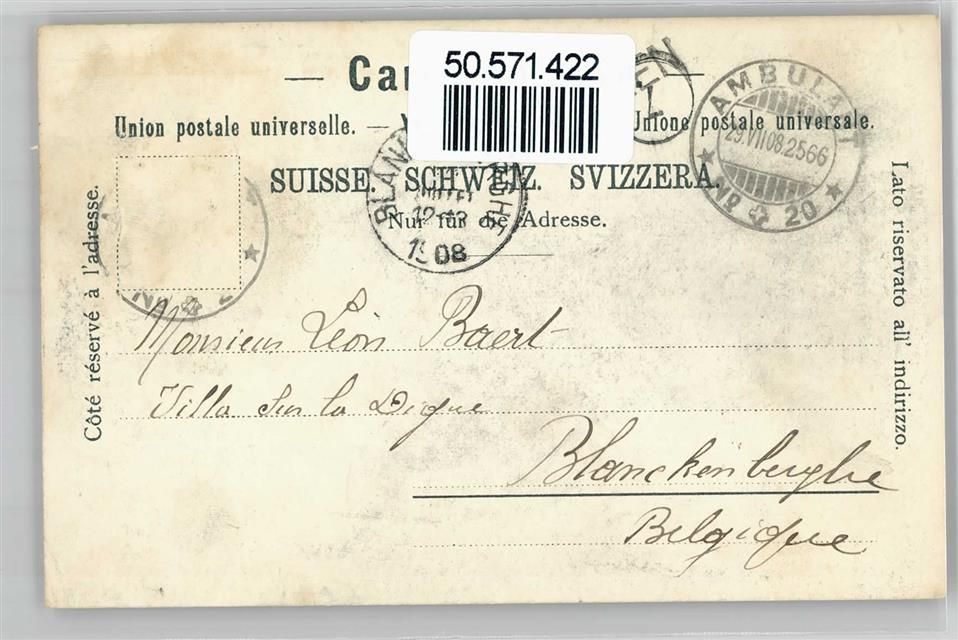 50.571.422
Union postale universelle. — Unione postale universale.
SUISSE. SCHWEIZ. SVIZZERA.
Nur für die Adresse.
Côté réservé à l'adresse.
Lato riservato all' indirizzo.
AMBULANT
29.VII08.2566
Nr 20
1908
Monsieur Léon Baert
Villa Sur la Digue
Blanckenberghe
Belgique